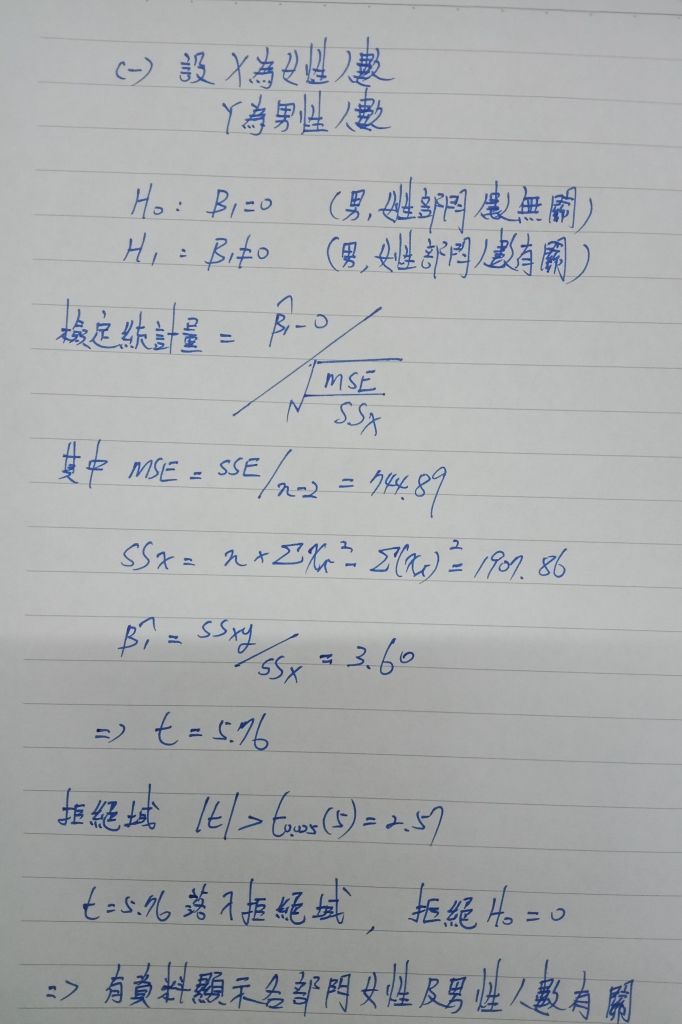 (一) 設 X為女性人數
Y為男性人數
H₀ : B₁=0 (男,女性部門人數無關)
H₁ : B₁≠0 (男,女性部門人數有關)
檢定統計量 = β̂₁-0 / √(MSE/SSx)
其中 MSE = SSE/n-2 = 744.89
SSx = n×Σxᵢ² - Σ(xᵢ)² = 1907.86
B̂₁ = SSxy/SSx = 3.60
=> t = 5.76
拒絕域 |t| > t₀.₀₂₅(5) = 2.57
t=5.76 落入拒絕域, 拒絕 H₀ = 0
=> 有資料顯示各部門女性及男性人數有關